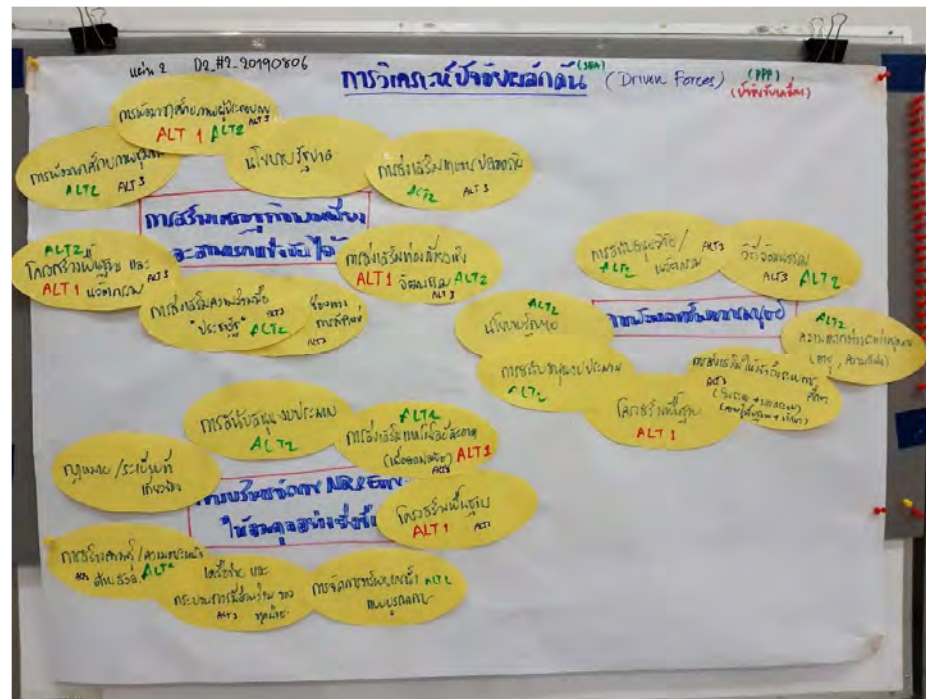 แผ่น 2 D2_#2_20190806
การวิเคราะห์ปัจจัยผลักดัน (SEA) (Driven Forces) (PPP)
(ปัจจัยขับเคลื่อน)
การพัฒนาศักยภาพผู้ประกอบการ
ALT 1 ALT2 ALT3
การพัฒนาศักยภาพชุมชน
ALT2 ALT3
นโยบายรัฐบาล
การส่งเสริมเกษตรปลอดภัย
ALT2 ALT3
การสร้างเศรษฐกิจพอเพียง
และสามารถแข่งขันได้
ALT2
โครงสร้างพื้นฐาน และ
ALT 1 นวัตกรรม ALT3
การส่งเสริมท่องเที่ยวเชิง
ALT1 วัฒนธรรม ALT2
ALT3
การส่งเสริมความร่วมมือ
"ประชารัฐ" ALT3 ALT2
ช่องทาง
ALT3
การสนับสนุนวิจัย/
ALT2 นวัตกรรม ALT3
วิถีวัฒนธรรม
ALT3 ALT2
การพัฒนาทรัพยากรมนุษย์
ALT2
นโยบายรัฐบาล
ALT2
ความแตกต่างระหว่างบุคคล
การสนับสนุนงบประมาณ
ALT2
การส่งเสริมให้เข้าถึงระบบการ
ศึกษา
ALT3
โครงสร้างพื้นฐาน
ALT 1
การสนับสนุนงบประมาณ
ALT2
ALT2
การส่งเสริมเทคโนโลยีสะอาด
ALT1
ALT3
กฎหมาย/ระเบียบที่
เกี่ยวข้อง
การบริหารจัดการ NR&Env
ให้สมดุลอย่างยั่งยืน
โครงสร้างพื้นฐาน
ALT 1 ALT3
การสร้างความรู้/ความตระหนัก
ALT3 ด้านสิ่งแวดล้อม ALT2
เครือข่าย และ
กระบวนการมีส่วนร่วม ของ
ALT3 ทุกฝ่าย
การจัดการทรัพยากรน้ำ ALT2
แบบบูรณาการ